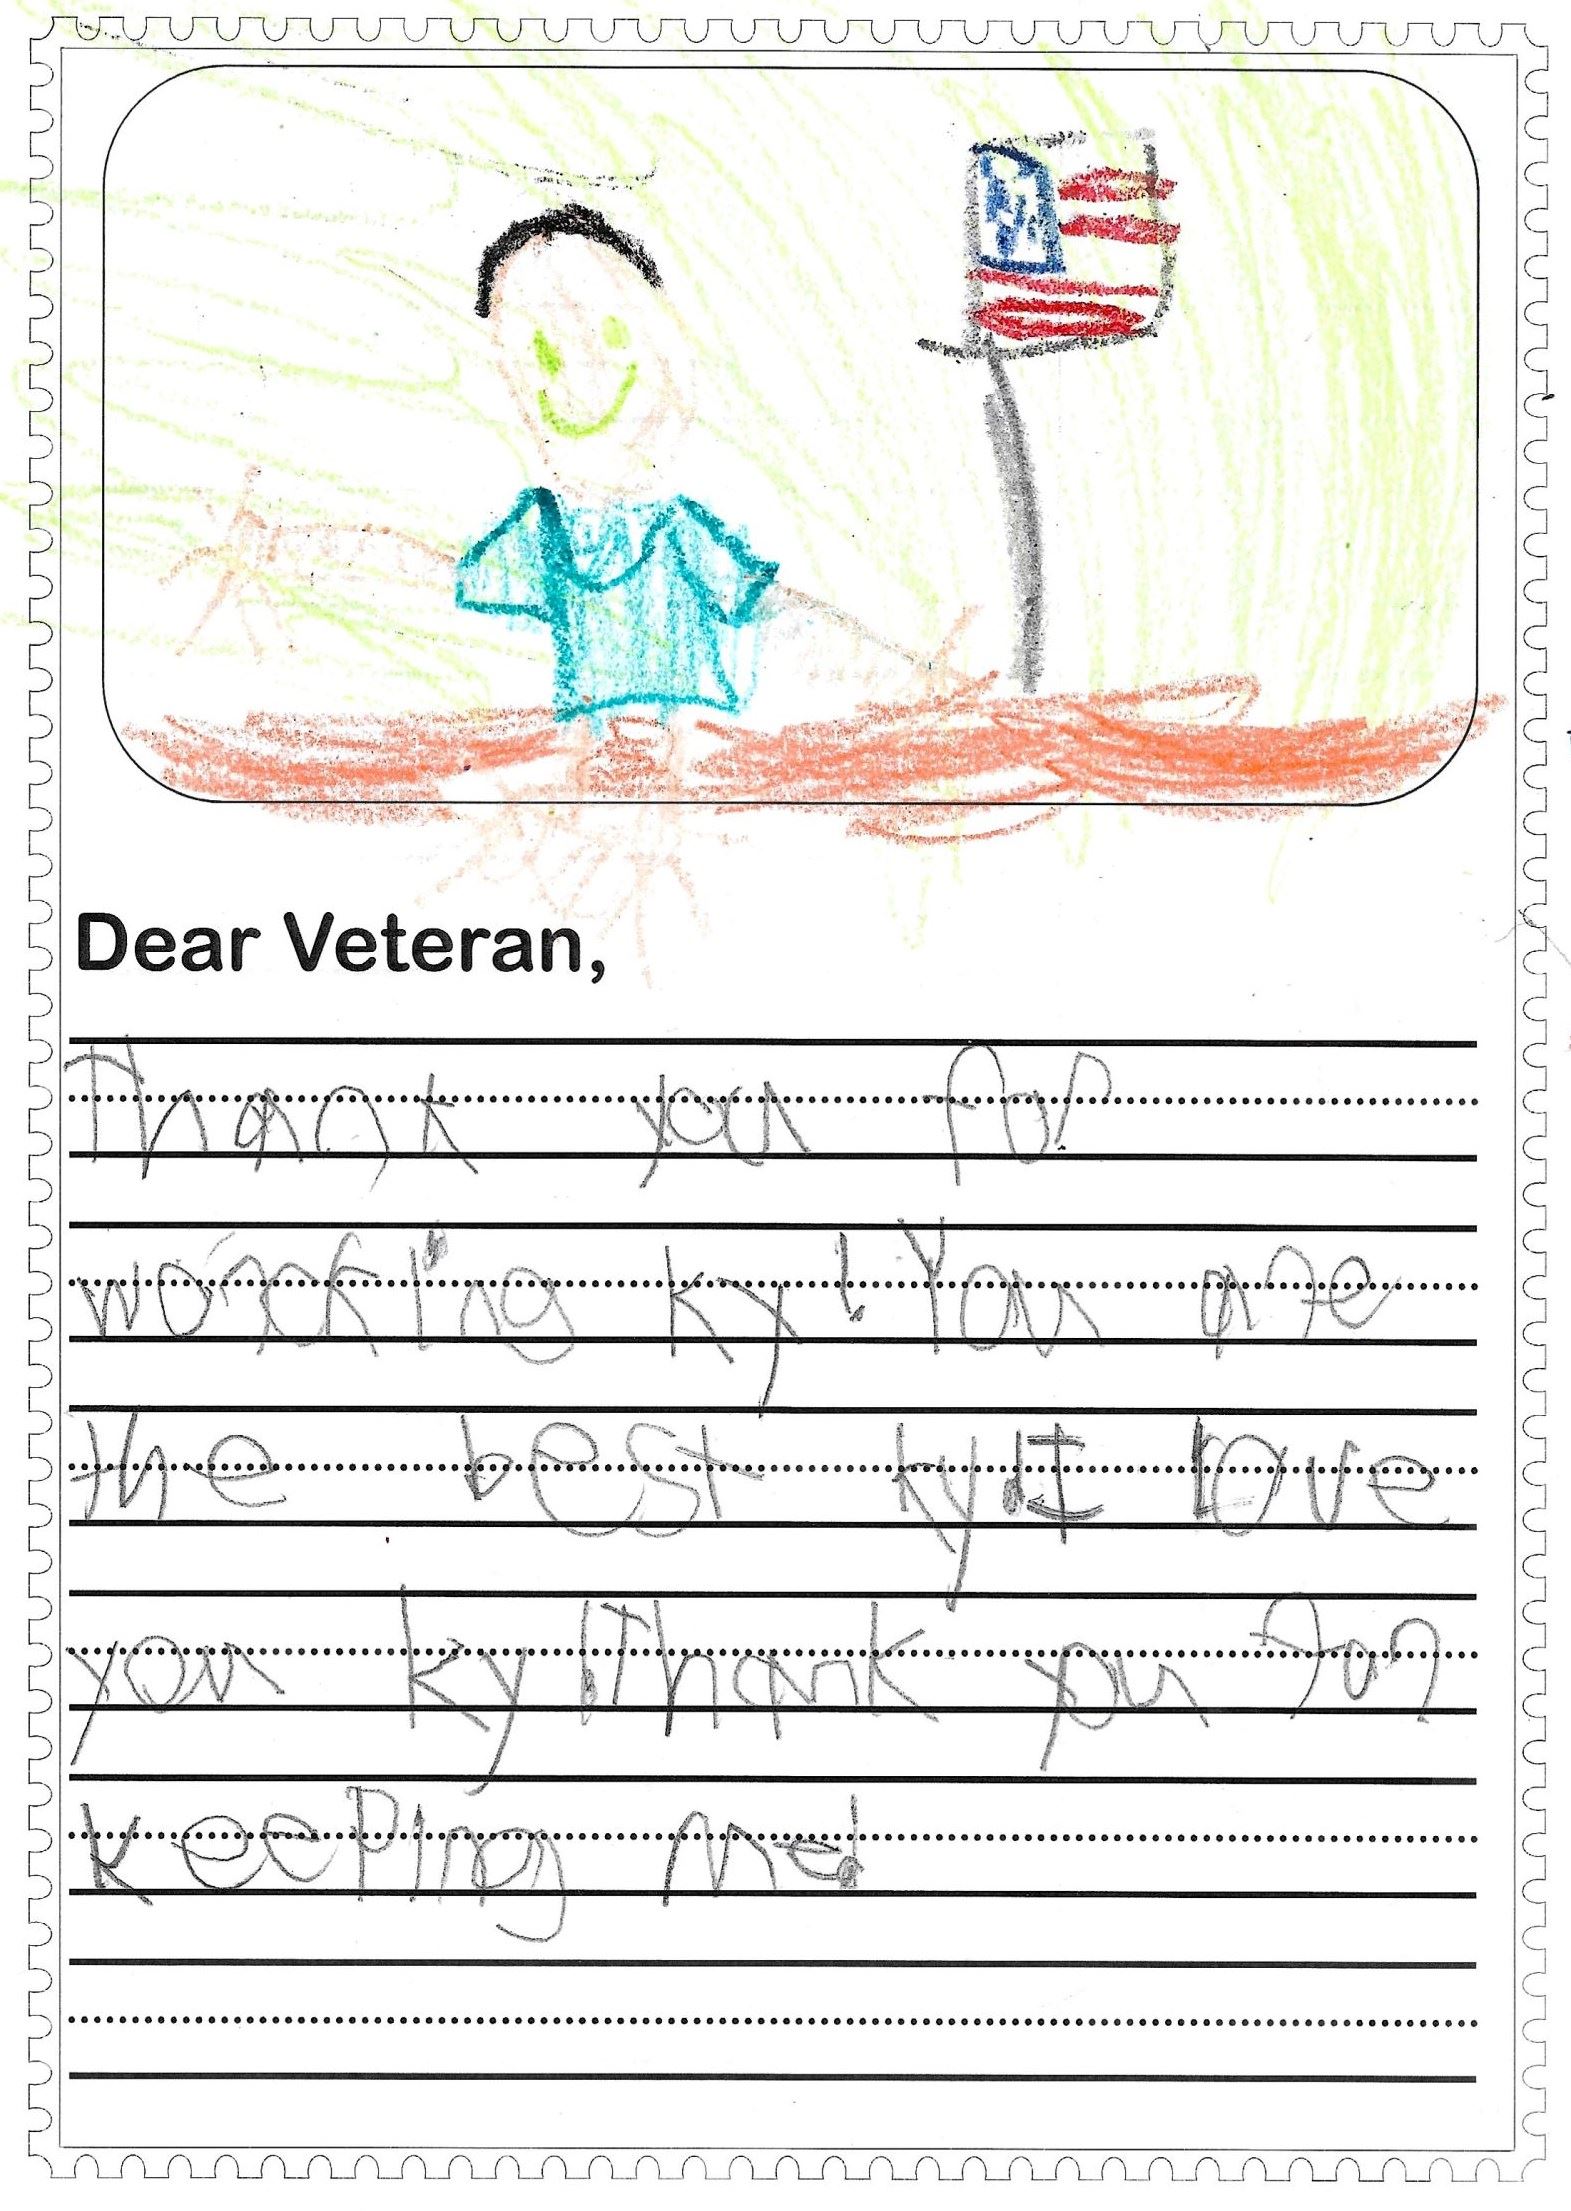 Dear Veteran,
Thank you for
working ky! You are
the best ky! I love
you ky! Thank you for
keeping me!